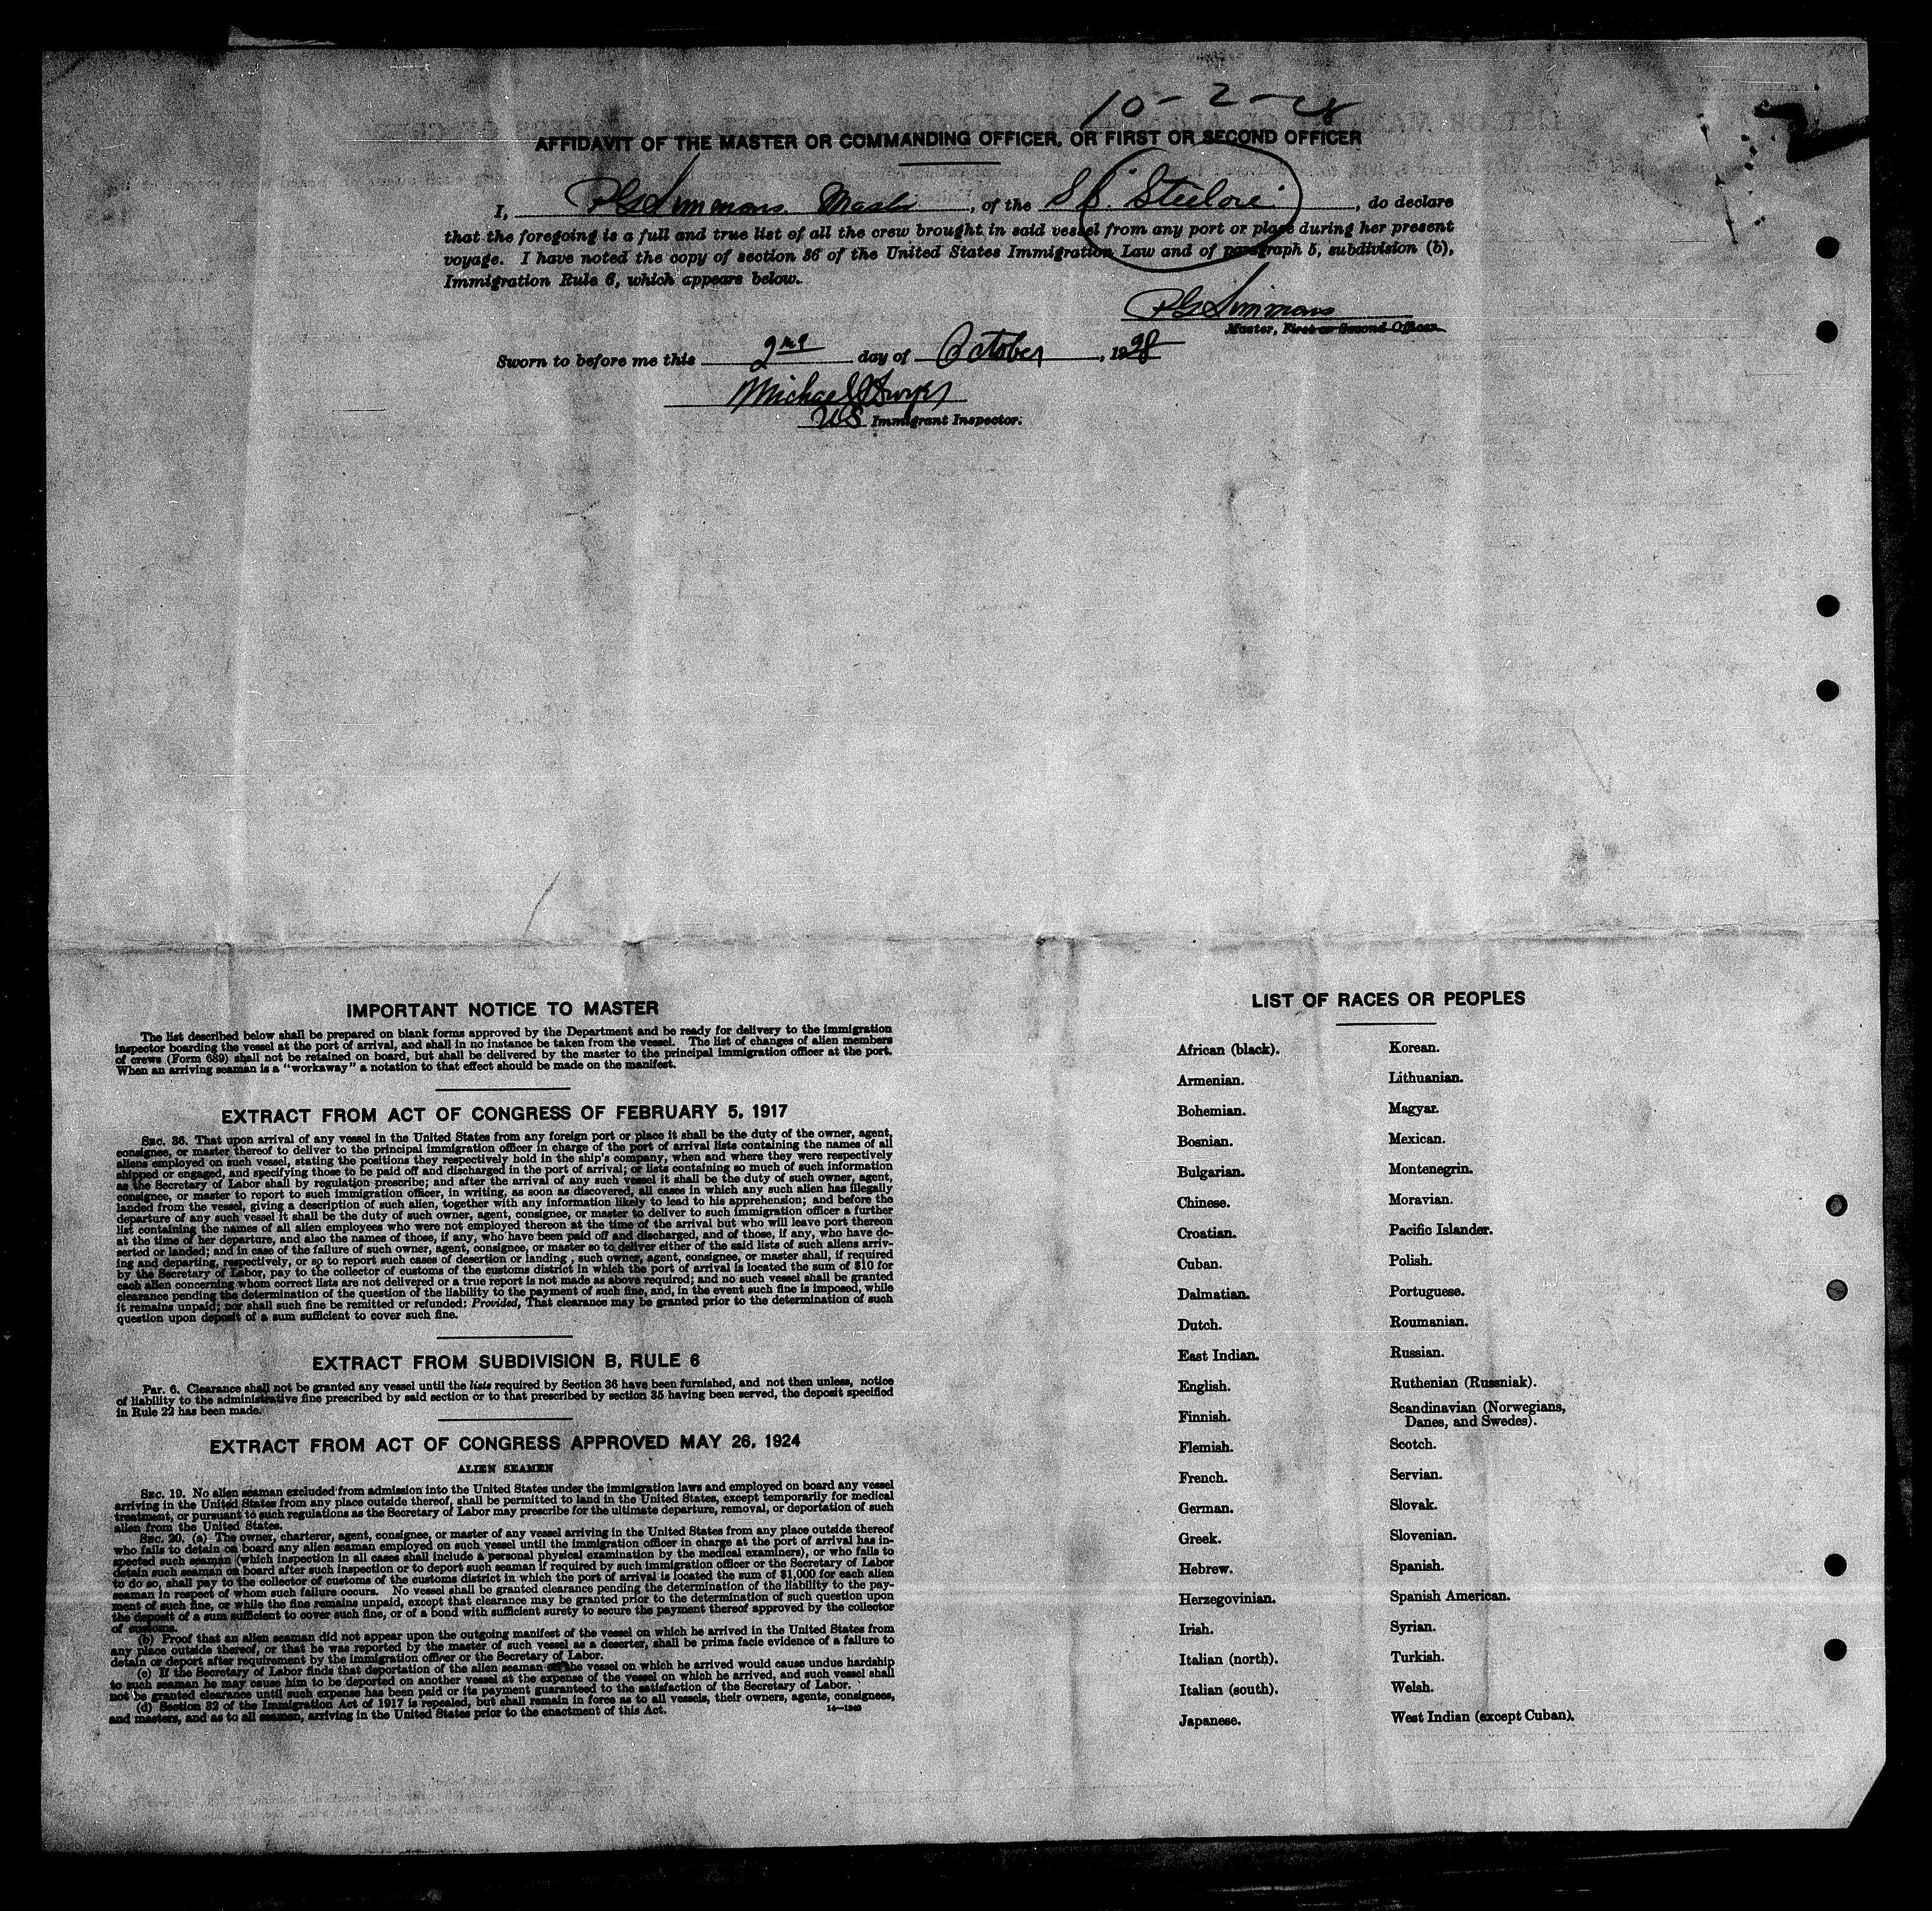 10-2-28
AFFIDAVIT OF THE MASTER OR COMMANDING OFFICER, OR FIRST OR SECOND OFFICER
I, P G Simmons. Master, of the S S. "Steelore", do declare
that the foregoing is a full and true list of all the crew brought in said vessel from any port or place during her present
voyage. I have noted the copy of section 36 of the United States Immigration Law and of paragraph 5, subdivision (b),
Immigration Rule 6, which appears below.
P G Simmons
Master, First or Second Officer.
Sworn to before me this 2nd day of October, 1928
Michael
US Immigrant Inspector.
IMPORTANT NOTICE TO MASTER
The list described below shall be prepared on blank forms approved by the Department and be ready for delivery to the immigration
inspector boarding the vessel at the port of arrival, and shall in no instance be taken from the vessel. The list of changes of alien members
of crews (Form 689) shall not be retained on board, but shall be delivered by the master to the principal immigration officer at the port.
When an arriving seaman is a "workaway" a notation to that effect should be made on the manifest.
EXTRACT FROM ACT OF CONGRESS OF FEBRUARY 5, 1917
SEC. 36. That upon arrival of any vessel in the United States from any foreign port or place it shall be the duty of the owner, agent,
consignee, or master thereof to deliver to the principal immigration officer in charge of the port of arrival lists containing the names of all
aliens employed on such vessel, stating the positions they respectively hold in the ship's company, when and where they were respectively
shipped or engaged, and specifying those to be paid off and discharged in the port of arrival; or lists containing so much of such information
as the Secretary of Labor shall by regulation prescribe; and after the arrival of any such vessel it shall be the duty of such owner, agent,
consignee, or master to report to such immigration officer, in writing, as soon as discovered, all cases in which any such alien has illegally
landed from the vessel, giving a description of such alien, together with any information likely to lead to his apprehension; and before the
departure of any such vessel it shall be the duty of such owner, agent, consignee, or master to deliver to such immigration officer a further
list containing the names of all alien employees who were not employed thereon at the time of the arrival but who will leave port thereon
at the time of her departure, and also the names of those, if any, who have been paid off and discharged, and of those, if any, who have de-
serted or landed; and in case of the failure of such owner, agent, consignee, or master so to deliver either of the said lists of such aliens arriv-
ing and departing, respectively, or so to report such cases of desertion or landing, such owner, agent, consignee, or master shall, if required
by the Secretary of Labor, pay to the collector of customs of the customs district in which the port of arrival is located the sum of $10 for
each alien concerning whom correct lists are not delivered or a true report is not made as above required; and no such vessel shall be granted
clearance pending the determination of the question of the liability to the payment of such fine, and, in the event such fine is imposed, while
it remains unpaid; nor shall such fine be remitted or refunded: Provided, That clearance may be granted prior to the determination of such
question upon deposit of a sum sufficient to cover such fine.
EXTRACT FROM SUBDIVISION B, RULE 6
Par. 6. Clearance shall not be granted any vessel until the lists required by Section 36 have been furnished, and not then unless, notice
of liability to the administrative fine prescribed by said section or to that prescribed by section 35 having been served, the deposit specified
in Rule 22 has been made.
EXTRACT FROM ACT OF CONGRESS APPROVED MAY 26, 1924
ALIEN SEAMEN
SEC. 19. No alien seaman excluded from admission into the United States under the immigration laws and employed on board any vessel
arriving in the United States from any place outside thereof, shall be permitted to land in the United States, except temporarily for medical
treatment, or pursuant to such regulations as the Secretary of Labor may prescribe for the ultimate departure, removal, or deportation of such
alien from the United States.
SEC. 20. (a) The owner, charterer, agent, consignee, or master of any vessel arriving in the United States from any place outside thereof
who fails to detain on board any alien seaman employed on such vessel until the immigration officer in charge at the port of arrival has in-
spected such seaman (which inspection in all cases shall include a personal physical examination by the medical examiners), or who fails to
detain such seaman on board after such inspection or to deport such seaman if required by such immigration officer or the Secretary of Labor
to do so, shall pay to the collector of customs of the customs district in which the port of arrival is located the sum of $1,000 for each alien
seaman in respect of whom such failure occurs. No vessel shall be granted clearance pending the determination of the liability to the pay-
ment of such fine, or while the fine remains unpaid, except that clearance may be granted prior to the determination of such question upon
the deposit of a sum sufficient to cover such fine, or of a bond with sufficient surety to secure the payment thereof approved by the collector
of customs.
(b) Proof that an alien seaman did not appear upon the outgoing manifest of the vessel on which he arrived in the United States from
any place outside thereof, or that he was reported by the master of such vessel as a deserter, shall be prima facie evidence of a failure to
detain or deport after requirement by the immigration officer or the Secretary of Labor.
(c) If the Secretary of Labor finds that deportation of the alien seaman on the vessel on which he arrived would cause undue hardship
to such seaman he may cause him to be deported on another vessel at the expense of the vessel on which he arrived, and such vessel shall
not be granted clearance until such expense has been paid or its payment guaranteed to the satisfaction of the Secretary of Labor.
(d) Section 32 of the Immigration Act of 1917 is repealed, but shall remain in force as to all vessels, their owners, agents, consignees,
and masters, and as to all seamen, arriving in the United States prior to the enactment of this Act.
14—1240
LIST OF RACES OR PEOPLES
African (black).
Armenian.
Bohemian.
Bosnian.
Bulgarian.
Chinese.
Croatian.
Cuban.
Dalmatian.
Dutch.
East Indian.
English.
Finnish.
Flemish.
French.
German.
Greek.
Hebrew.
Herzegovinian.
Irish.
Italian (north).
Italian (south).
Japanese.
Korean.
Lithuanian.
Magyar.
Mexican.
Montenegrin.
Moravian.
Pacific Islander.
Polish.
Portuguese.
Roumanian.
Russian.
Ruthenian (Russniak).
Scandinavian (Norwegians,
Danes, and Swedes).
Scotch.
Servian.
Slovak.
Slovenian.
Spanish.
Spanish American.
Syrian.
Turkish.
Welsh.
West Indian (except Cuban).